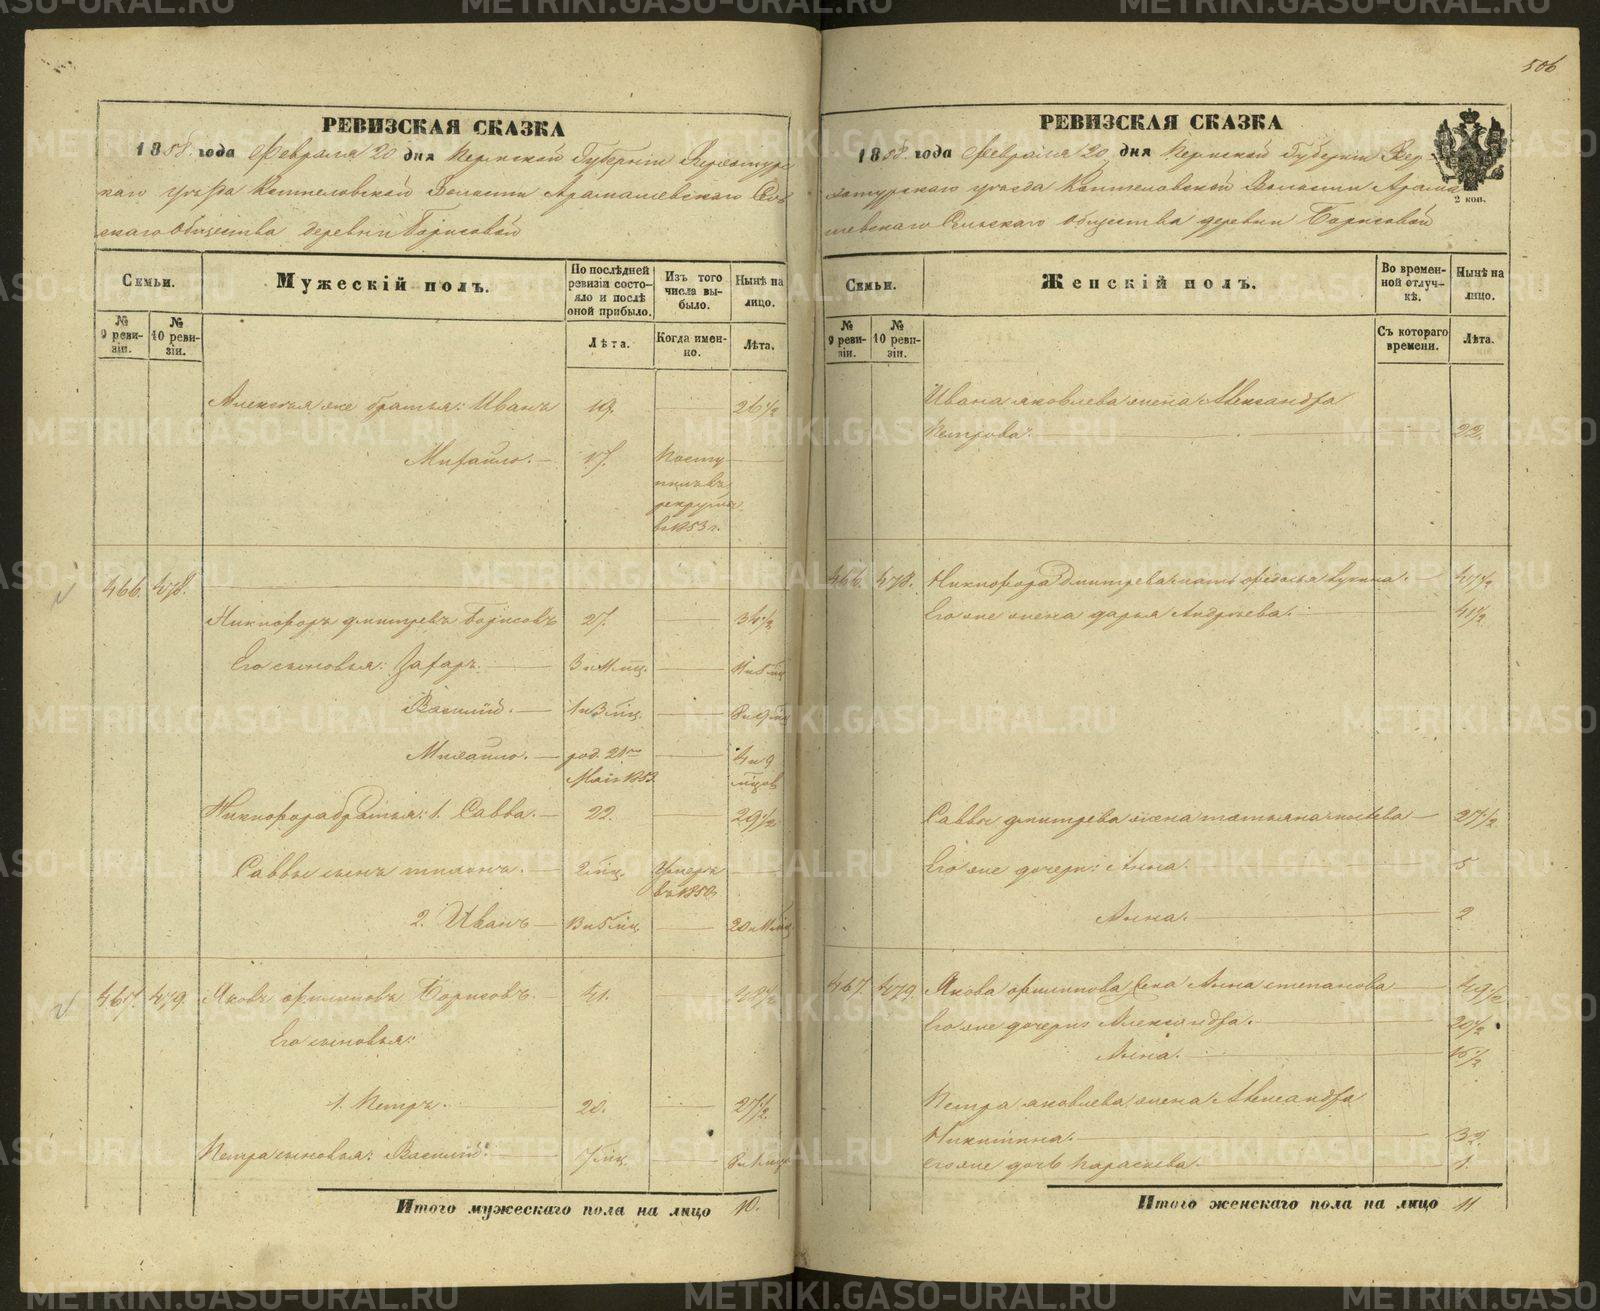 506
РЕВИЗСКАЯ СКАЗКА
1858 года Февраля 20 дня Пермской Губернии Верхотурс
каго уезда Коптеловской Волости Арамашевскаго Сель
скаго Общества деревни Борисовой
Семьи.
Мужескій полъ.
По послѣдней ревизіи состояло и послѣ оной прибыло.
Изъ того числа выбыло.
Нынѣ на лицо.
№ 9 ревизіи.
№ 10 ревизіи.
Лѣта.
Когда именно.
Лѣта.
Алексѣя же братья: Иванъ 19. 26½
Михайло. 17. Посту
пилъ въ
рекруты
въ 1853 г.
466. 478.
Никифоръ Дмитревъ Борисовъ 27. 34½
Его сыновья: Захаръ. 3 и 11 мц.
Василій. 1 и 3 мц. 8 и 9 мц
Михайло. род. 21го 4 и 9
Маія 1853 мцов
Никифора братья: 1. Савва. 22. 29½
Саввы сынъ 2 мц. Умеръ
въ 1850
2. Иванъ 13 и 5 мц. 20 и 11 мц
467. 479. Яковъ Филиповъ Борисовъ. 41. 48½
Его сыновья:
1. Петръ. 20. 27½
Петра сыновья: Василій 7 мц. 8 и 1 мц
Итого мужескаго пола на лицо 10.
РЕВИЗСКАЯ СКАЗКА
1858 года Февраля 20 дня Пермской Губерніи Вер-
хотурскаго уезда Коптеловской Волости Арама
шевскаго Сельскаго Общества деревни Борисовой
2 коп.
Семьи.
Женскій полъ.
Во временной отлучкѣ.
Нынѣ на лицо.
№ 9 ревизіи.
№ 10 ревизіи.
Съ котораго времени.
Лѣта.
Ивана Яковлева жена Александра
Петрова. 22.
466. 478. Никифора Дмитрева мать Федосья 47½
Его же жена Дарья Андреева. 41½
Саввы Дмитрева жена Татьяна 27½
Его же дочери: Анна. 5
Анна. 2
467. 479. Якова Филипова жена Анна Степанова 49½
Его же дочери Александра. 20½
Анна. 16½
Петра Яковлева жена Александра
Никитина. 32.
Его же дочь Параскева. 1.
Итого женскаго пола на лицо 11
METRIKI.GASO-URAL.RU